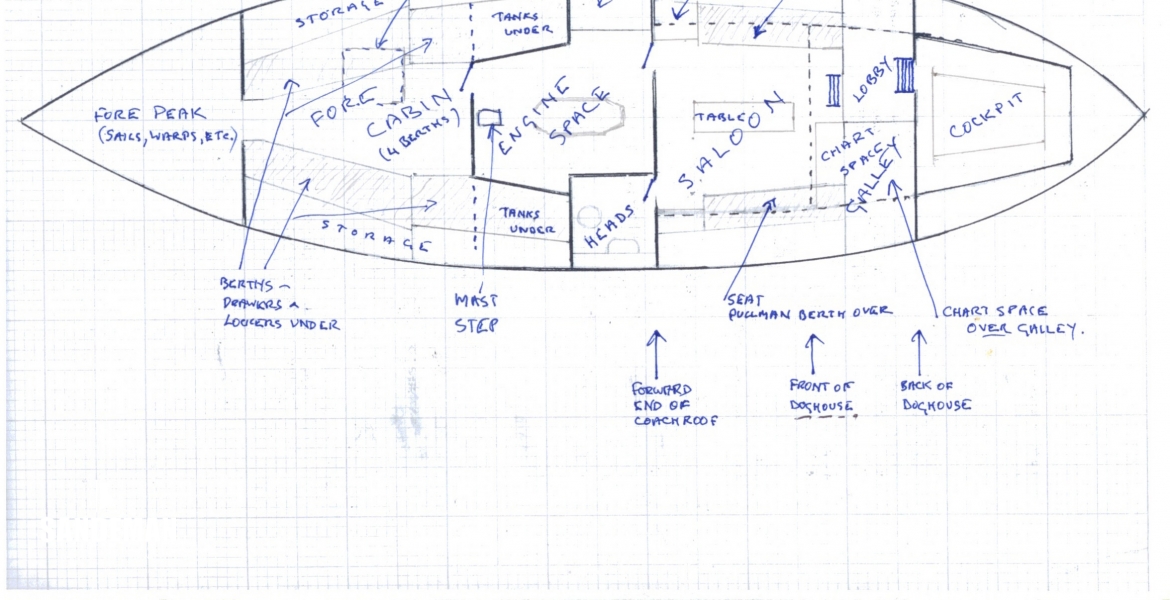 STORAGE
TANKS
UNDER
FORE PEAK
(SAILS, WARPS, ETC.)
FORE
CABIN
(4 BERTHS)
ENGINE
SPACE
TABLE
SALOON
LOBBY
COCKPIT
CHART
SPACE
GALLEY
STORAGE
TANKS
UNDER
HEADS
BERTHS -
DRAWERS &
LOCKERS UNDER
MAST
STEP
SEAT
PULLMAN BERTH OVER
CHART SPACE
OVER GALLEY.
FORWARD
END OF
COACHROOF
FRONT OF
DOGHOUSE
BACK OF
DOGHOUSE